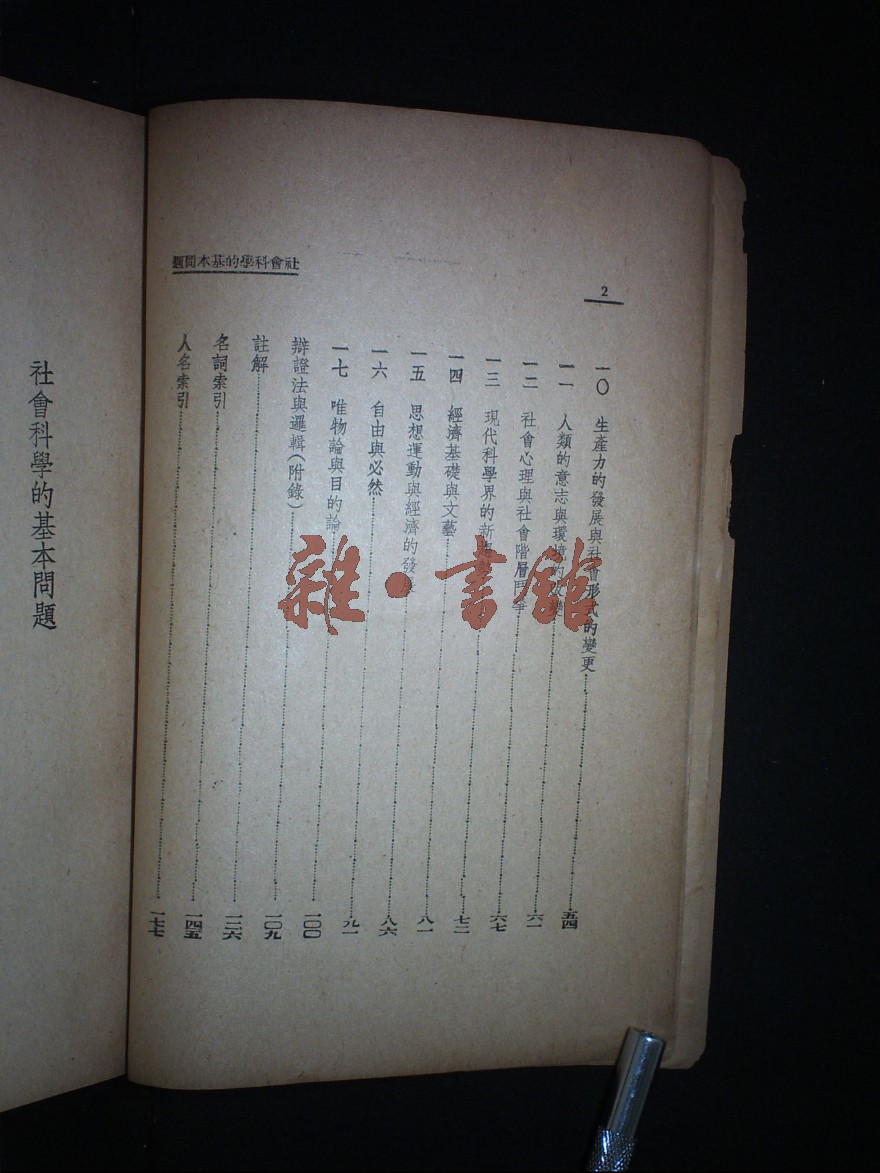 2
社會科學的基本問題
一〇 生產力的發展與社會形式的變更……五四
一一 人類的意志與環境的……六一
一二 社會心理與社會階層鬥爭……六七
一三 現代科學界的新……七二
一四 經濟基礎與文藝……八一
一五 思想運動與經濟的發展……八六
一六 自由與必然……九一
一七 唯物論與目的論……一〇〇
辯證法與邏輯(附錄)……一〇九
註解……一二六
名詞索引……一四五
人名索引……一七七
社會科學的基本問題
雜·書館